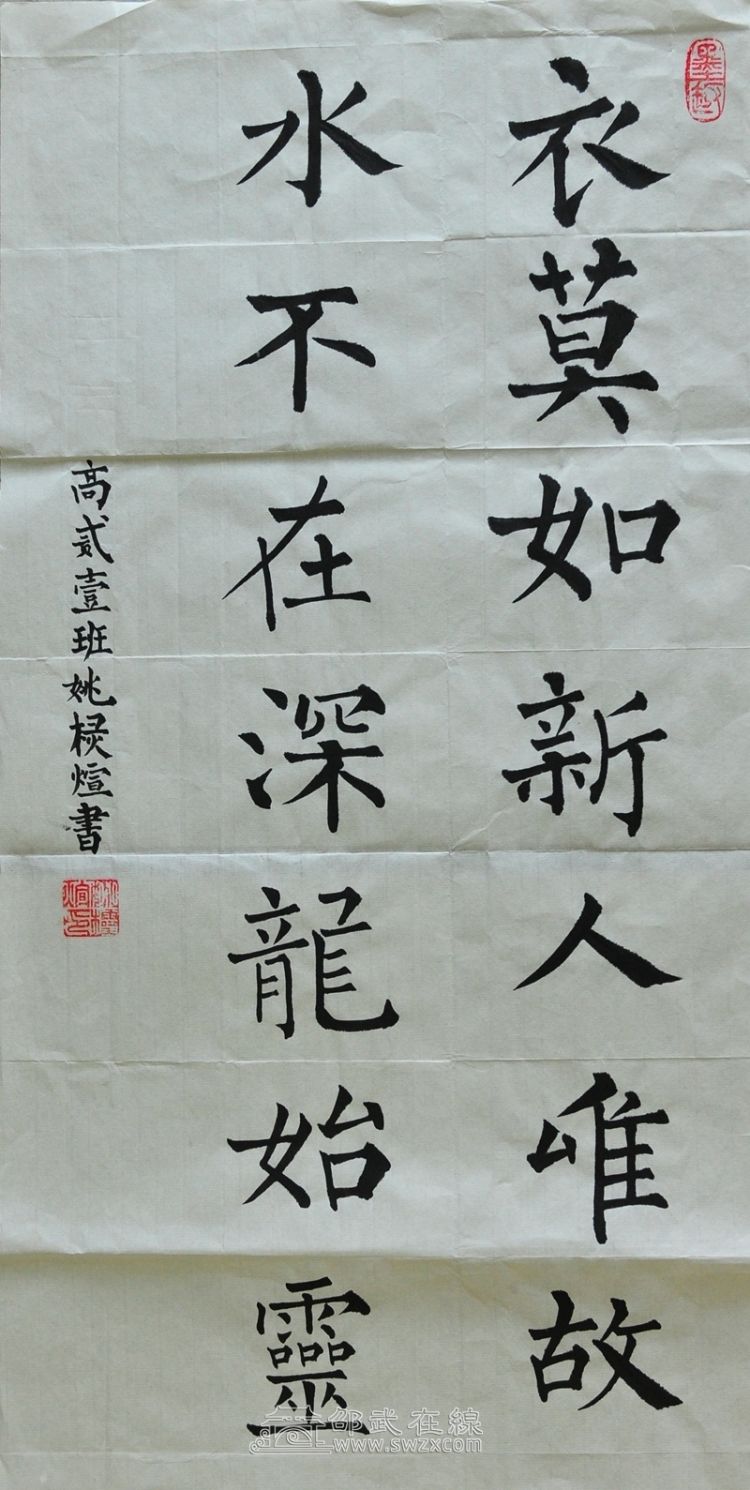 衣莫如新人唯故
水不在深龍始靈
高貳壹班姚煊書
邵武在線
www.swzx.com